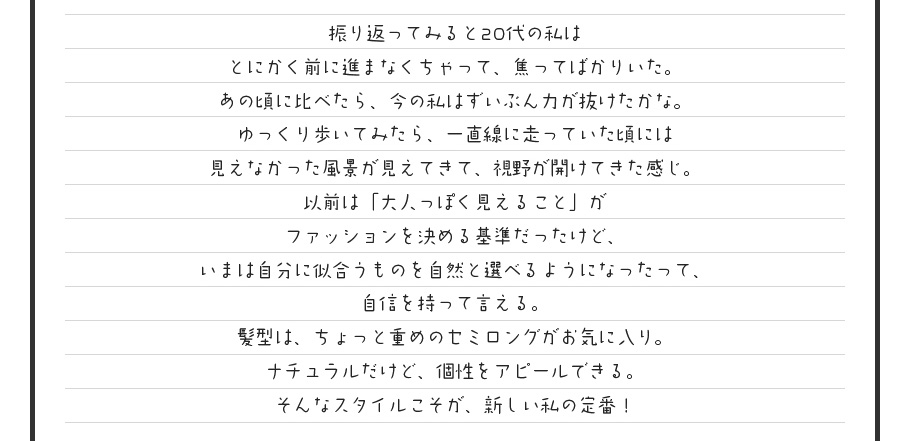 振り返ってみると20代の私は
とにかく前に進まなくちゃって、焦ってばかりいた。
あの頃に比べたら、今の私はずいぶん力が抜けたかな。
ゆっくり歩いてみたら、一直線に走っていた頃には
見えなかった風景が見えてきて、視野が開けてきた感じ。
以前は「大人っぽく見えること」が
ファッションを決める基準だったけど、
いまは自分に似合うものを自然と選べるようになったって、
自信を持って言える。
髪型は、ちょっと重めのセミロングがお気に入り。
ナチュラルだけど、個性をアピールできる。
そんなスタイルこそが、新しい私の定番！